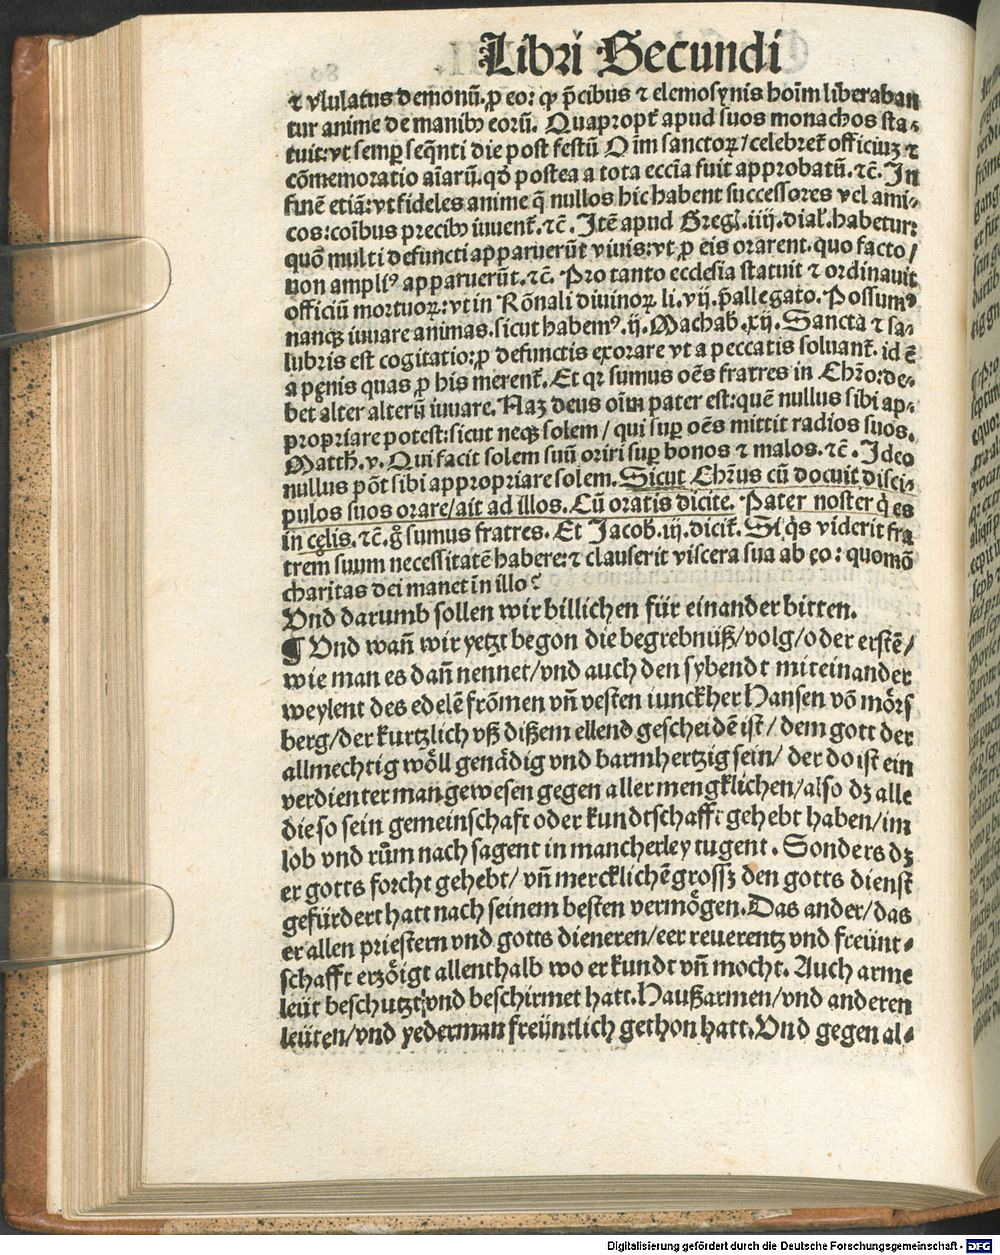 Libri Secundi
⁊ vlulatus demonū. ꝓ eo: ꝙ p̄cibus ⁊ elemosynis hoīm liberaban
tur anime de manibꝰ eorū. Quapropt̄ apud suos monachos sta⸗
tuit: vt semꝑ seq̄nti die post festū Oīm sanctoꝝ/ celebret̄ officiuȝ ⁊
cōmemoratio aīarū. qḋ postea a tota eccīa fuit approbatū. ⁊c̄. In
finē etiā: vt fideles anime q̄ nullos hic habent successores vel ami⸗
cos: coībus precibꝰ iuuent̄. ⁊c̄. Itē apud Greg. iiij. dial. habetur:
quō multi defuncti apparuerūt viuis: vt ꝓ eis orarent. quo facto/
non ampliꝰ apparuerūt. ⁊c̄. Pro tanto ecclesia statuit ⁊ ordinauit
officiū mortuoꝝ: vt in Rōnali diuinoꝝ li. vij. p̄allegato. Possumꝰ
nanqꝫ iuuare animas. sicut habemꝰ. ij. Machab̄. xij. Sancta ⁊ sa⸗
lubris est cogitatio: ꝓ defunctis exorare vt a peccatis soluant̄. id ē
a pęnis quas ꝓ his merent̄. Et qꝛ sumus oēs fratres in Chr̄o: de⸗
bet alter alterū iuuare. Naȝ deus oīm pater est: quē nullus sibi ap⸗
propriare potest: sicut neqꝫ solem/ qui suꝑ oēs mittit radios suos.
Matth̄. v. Qui facit solem suū oriri suꝑ bonos ⁊ malos. ⁊c̄. Ideo
nullus pōt sibi appropriare solem. Sicut Chr̄us cū docuit disci⸗
pulos suos orare/ ait ad illos. Cū oratis dicite. Pater noster q̇ es
in cęlis. ⁊c̄. g̊ sumus fratres. Et Jacob̄. iij. dicit̄. Si q̇s viderit fra
trem suum necessitatē habere: ⁊ clauserit viscera sua ab eo: quomō
charitas dei manet in illo?
Vnd darumb sollen wir billichen für einander bitten.
¶ Vnd wañ wir yetzt begon die begrebnüß/ volg/ oder erstē/
wie man es dañ nennet/ vnd auch den sybendt miteinander
weylent des edelē frōmen vñ vesten iunckher Hansen vō mörs
berg/ der kurtzlich vß dißem ellend gescheidē ist/ dem gott der
allmechtig wöll genädig vnd barmhertzig sein/ der do ist ein
verdienter man gewesen gegen aller mengklichen/ also dȝ alle
die so sein gemeinschaft oder kundtschafft gehebt haben/ im
lob vnd rům nach sagent in mancherley tugent. Sonders dȝ
er gotts forcht gehebt/ vñ mercklichē grossȝ den gotts dienst
gefürdert hatt nach seinem besten vermögen. Das ander/ das
er allen priestern vnd gotts dieneren/ eer reuerentz vnd freünt⸗
schafft erzöigt allenthalb wo er kundt vñ mocht. Auch arme
leüt beschutzt/ vnd beschirmet hatt. Haußarmen/ vnd anderen
leüten/ vnd yederman freüntlich gethon hatt. Vnd gegen al⸗
Digitalisierung gefördert durch die Deutsche Forschungsgemeinschaft - DFG